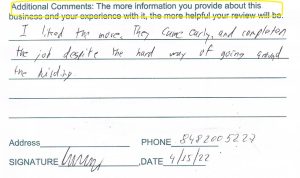 Additional Comments: The more information you provide about this
business and your experience with it, the more helpful your review will be.
I liked the move. They came early, and completen
the job despite the hard way of going around
the
Address PHONE 8482005227
SIGNATURE ,DATE 4/15/22